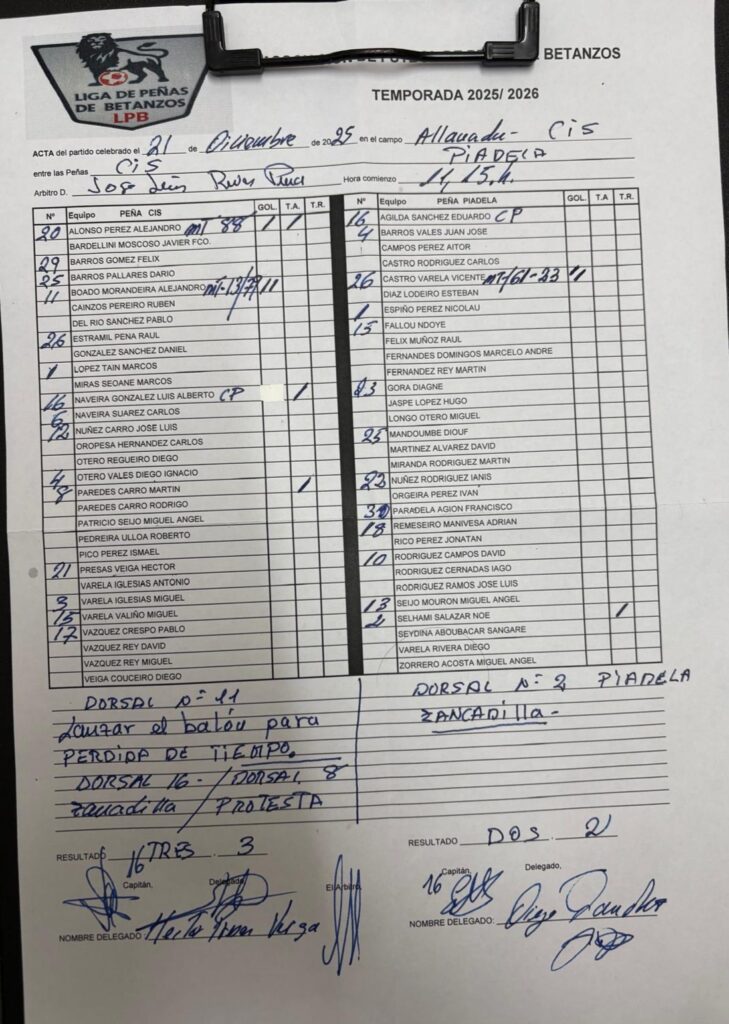 LIGA DE PEÑAS
DE BETANZOS
LPB
BETANZOS
TEMPORADA 2025/ 2026
ACTA del partido celebrado el 21 de Diciembre de 2025 en el campo - CIS
entre las Peñas CIS PIADELA
Arbitro D. Hora comienzo 11,15.h.
Nº Equipo PEÑA CIS GOL. T.A. T.R.
20 ALONSO PEREZ ALEJANDRO MT 88 / /
BARDELLINI MOSCOSO JAVIER FCO.
29 BARROS GOMEZ FELIX
25 BARROS PALLARES DARIO
11 BOADO MORANDEIRA ALEJANDRO MT-13/77 //
CAINZOS PEREIRO RUBEN
DEL RIO SANCHEZ PABLO
26 ESTRAMIL PENA RAUL
GONZALEZ SANCHEZ DANIEL
1 LOPEZ TAIN MARCOS
MIRAS SEOANE MARCOS
16 NAVEIRA GONZALEZ LUIS ALBERTO CP /
6 NAVEIRA SUAREZ CARLOS
12 NUÑEZ CARRO JOSE LUIS
OROPESA HERNANDEZ CARLOS
OTERO REGUEIRO DIEGO
4 OTERO VALES DIEGO IGNACIO
8 PAREDES CARRO MARTIN /
PAREDES CARRO RODRIGO
PATRICIO SEIJO MIGUEL ANGEL
PEDREIRA ULLOA ROBERTO
PICO PEREZ ISMAEL
21 PRESAS VEIGA HECTOR
VARELA IGLESIAS ANTONIO
VARELA IGLESIAS MIGUEL
15 VARELA VALIÑO MIGUEL
17 VAZQUEZ CRESPO PABLO
VAZQUEZ REY DAVID
VAZQUEZ REY MIGUEL
VEIGA COUCEIRO DIEGO
Nº Equipo PEÑA PIADELA GOL. T.A T.R.
16 AGILDA SANCHEZ EDUARDO CP
4 BARROS VALES JUAN JOSE
CAMPOS PEREZ AITOR
CASTRO RODRIGUEZ CARLOS
26 CASTRO VARELA VICENTE MT/61-23 //
DIAZ LODEIRO ESTEBAN
1 ESPIÑO PEREZ NICOLAU
15 FALLOU NDOYE
FELIX MUÑOZ RAUL
FERNANDES DOMINGOS MARCELO ANDRE
FERNANDEZ REY MARTIN
GORA DIAGNE
JASPE LOPEZ HUGO
LONGO OTERO MIGUEL
25 MANDOUMBE DIOUF
MARTINEZ ALVAREZ DAVID
MIRANDA RODRIGUEZ MARTIN
NUÑEZ RODRIGUEZ IANIS
ORGEIRA PEREZ IVAN
PARADELA AGION FRANCISCO
18 REMESEIRO MANIVESA ADRIAN
RICO PEREZ JONATAN
10 RODRIGUEZ CAMPOS DAVID
RODRIGUEZ CERNADAS IAGO
RODRIGUEZ RAMOS JOSE LUIS
13 SEIJO MOURON MIGUEL ANGEL
2 SELHAMI SALAZAR NOE /
SEYDINA ABOUBACAR SANGARE
VARELA RIVERA DIEGO
ZORRERO ACOSTA MIGUEL ANGEL
DORSAL Nº 11
Lanzar el balón para
PERDIDA DE TIEMPO.
DORSAL 16 - / DORSAL 8
zanadilla / PROTESTA
DORSAL Nº 2 PIADELA
ZANCADILLA -
RESULTADO TRES . 3
16
Capitán, Delegado, El Arbitro,
NOMBRE DELEGADO:
RESULTADO DOS . 2
Capitán, Delegado,
16
NOMBRE DELEGADO: